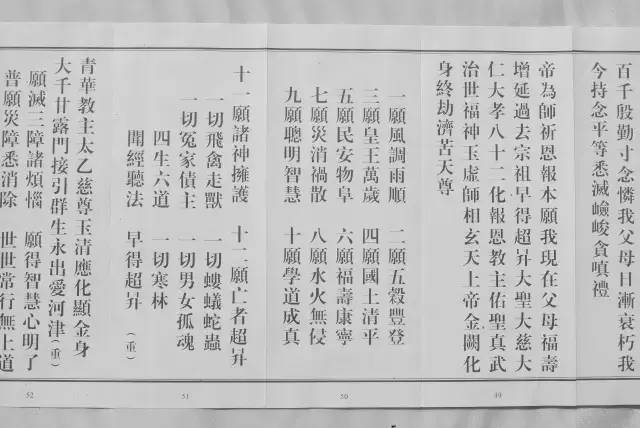 百千殷勤寸念憐我父母日漸衰朽我
今持念平等悉滅嶮峻貪嗔禮
帝為師祈恩報本願我現在父母福壽
增延過去宗祖早得超昇大聖大慈大
仁大孝八十二化報恩教主佑聖真武
治世福神玉虛師相玄天上帝金闕化
身終劫濟苦天尊
49
一願風調雨順 二願五穀豐登
三願皇王萬歲 四願國上清平
五願民安物阜 六願福壽康寧
七願災消禍散 八願水火無侵
九願聰明智慧 十願學道成真
50
十一願諸神擁護 十二願亡者超昇
一切飛禽走獸 一切螻蟻蛇蟲
一切冤家債主 一切男女孤魂
四生六道 一切寒林
聞經聽法 早得超昇 (重)
51
青華教主太乙慈尊玉清應化顯金身
大千甘露門接引群生永出愛河津(重)
願滅三障諸煩惱 願得智慧心明了
普願災障悉消除 世世常行無上道
52